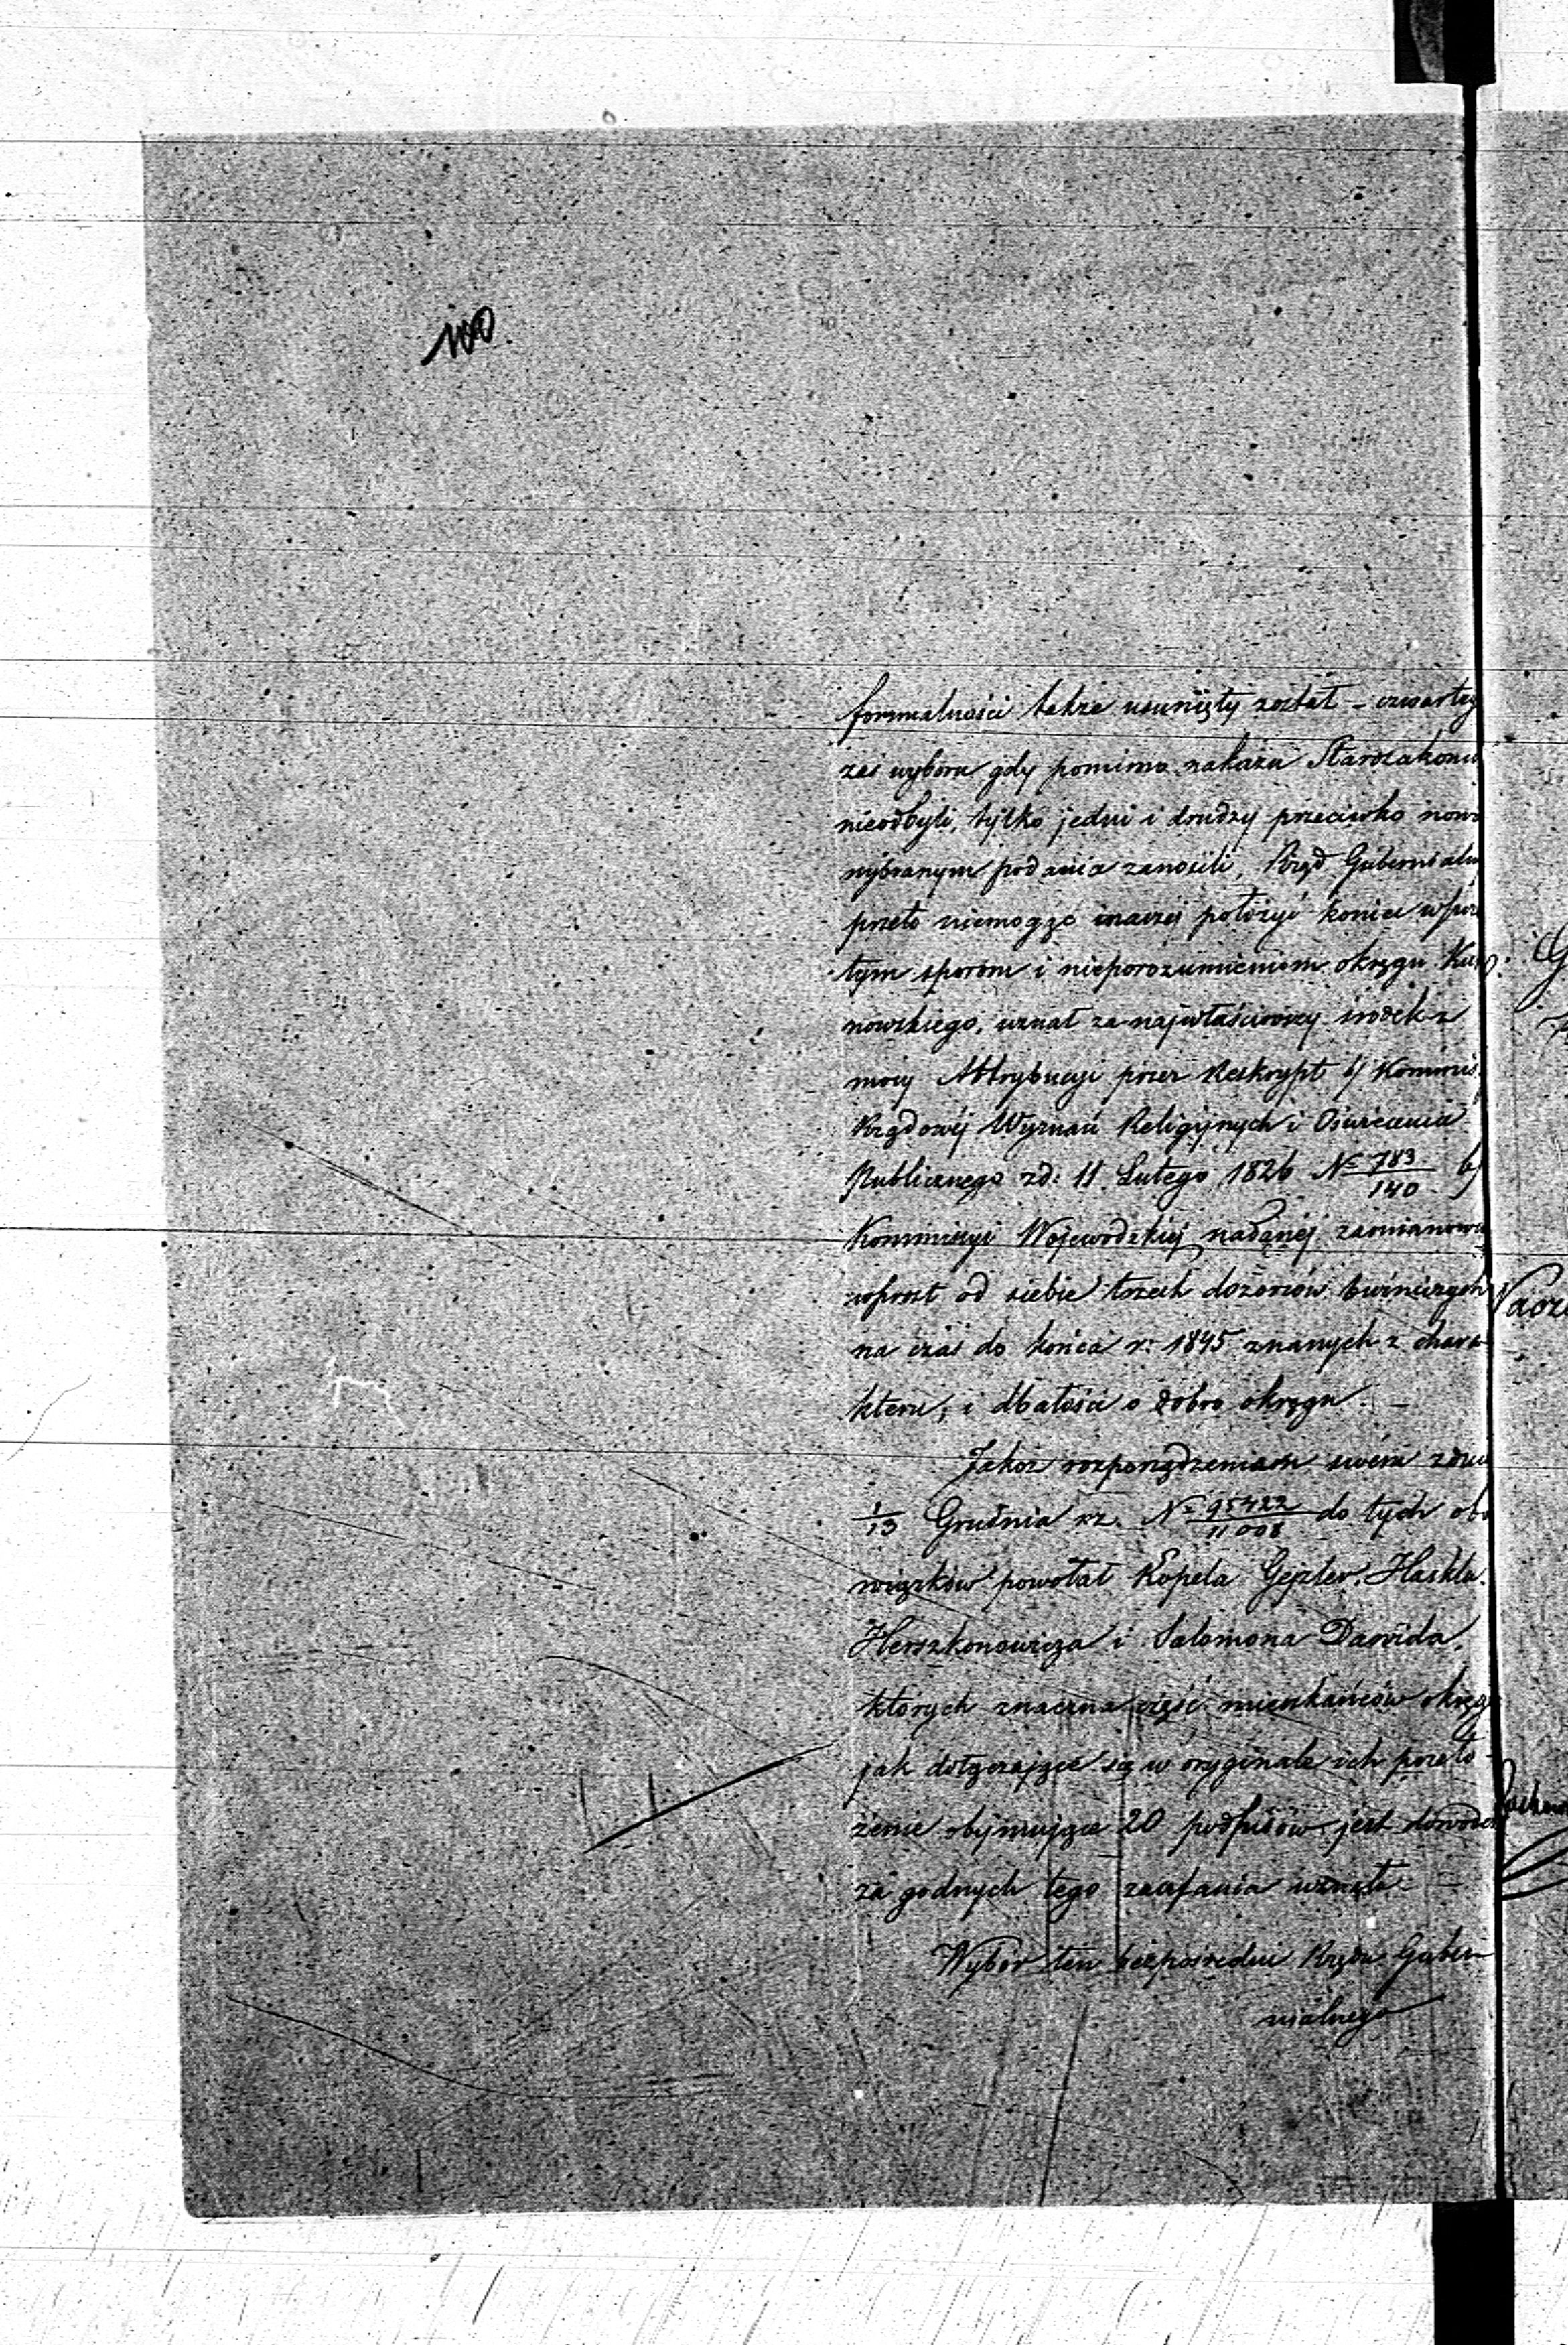 100.
formalności także usunięty został – czwartego
zaś wyboru gdy pomimo nakazu Starozakonni
nieodbyli, tylko jedni i drudzy przeciwko nowo
wybranym podania zanosili, Rząd Gubernialny
przeto niemogąc inaczej położyć koniec
tym sporom i nieporozumieniom okręgu
nowskiego, uznał za najwłaściwszy środek z
mocy Attrybucyi przez Reskrypt b/ Kommis.
Rządowéj Wyznań Religijnych i Oświecenia
Publicznego z d: 11 Lutego 1826 № 783/140 b/
Kommissyi Wojewodzkiéj nadanéj zamianować
wprost od siebie trzech dozorców bużniczych
na czas do końca r: 1845 znanych z charak-
kteru, i dbałości o dobro okręgu. –
Jakoż rozporządzeniem swém z dnia
1/13 Grudnia rz. № 95422/11008 do tych obo
wiązków powołał Kopela Gejzler, Haskla
Herszkonowicza i Salomona Dawida,
których znaczna część mieszkańców okręgu
jak dołączające się w oryginale ich przeło-
żenie objmujące 20 podpisów jest dowodem
za godnych tego zaufania uznała –
Wybór ten bezpośredni Rządu Guber-
nialnego